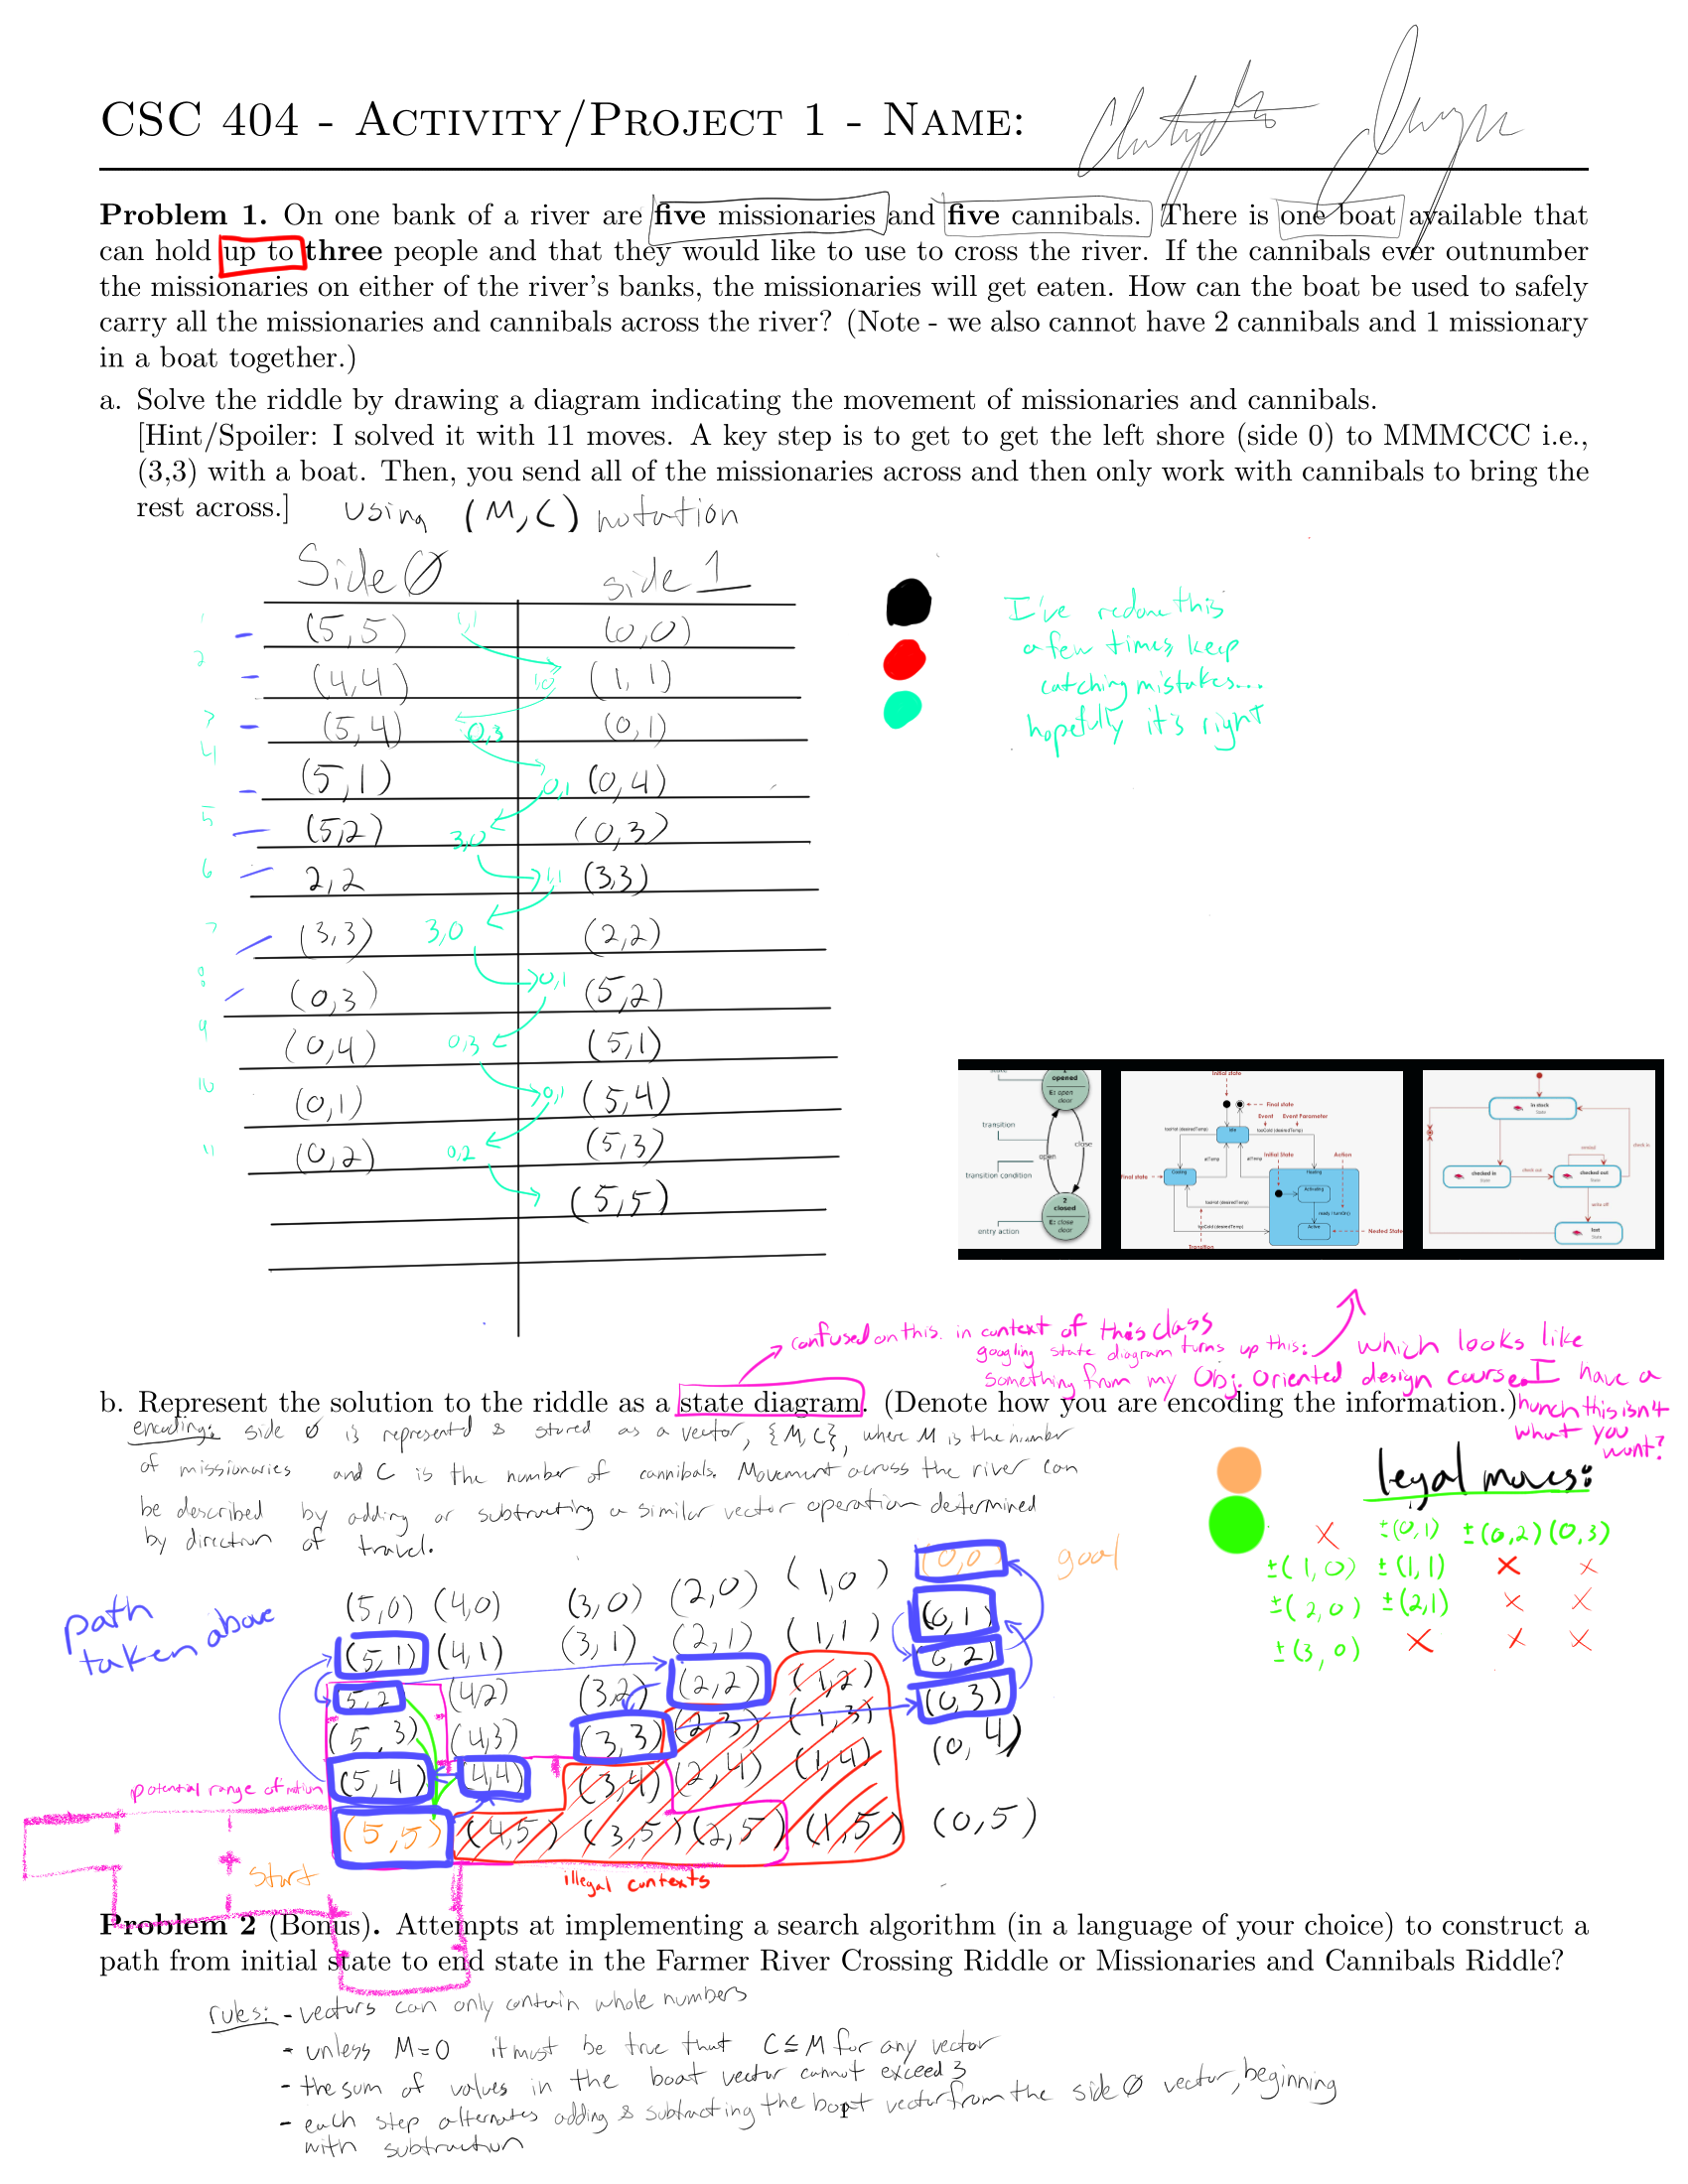 CSC 404 - Activity/Project 1 - Name:
Problem 1. On one bank of a river are five missionaries and five cannibals. There is one boat available that
can hold up to three people and that they would like to use to cross the river. If the cannibals ever outnumber
the missionaries on either of the river's banks, the missionaries will get eaten. How can the boat be used to safely
carry all the missionaries and cannibals across the river? (Note - we also cannot have 2 cannibals and 1 missionary
in a boat together.)
a. Solve the riddle by drawing a diagram indicating the movement of missionaries and cannibals.
[Hint/Spoiler: I solved it with 11 moves. A key step is to get to get the left shore (side 0) to MMMCCC i.e.,
(3,3) with a boat. Then, you send all of the missionaries across and then only work with cannibals to bring the
rest across.]
using (M,C) notation
Side 0 side 1
1 - (5,5) 1,1 (0,0)
2 - (4,4) 1,0 (1,1)
3 - (5,4) 0,3 (0,1)
4 - (5,1) 0,1 (0,4)
5 - (5,2) 3,0 (0,3)
6 - 2,2 1,1 (3,3)
7 - (3,3) 3,0 (2,2)
8 - (0,3) 0,1 (5,2)
9 (0,4) 0,3 (5,1)
10 (0,1) 0,1 (5,4)
11 (0,2) 0,2 (5,3)
(5,5)
I've redone this
a few times keep
catching mistakes...
hopefully it's right
opened
E: open
door
transition
close
open
transition condition
2
closed
E: close
door
entry action
Initial state
Final state
Event Event Parameter
Idle
tooHot (desiredTemp)
tooCold (desiredTemp)
atTemp
atTemp
Initial State
Action
Final state
Cooling
Heating
Activating
tooHot (desiredTemp)
ready / turnOn()
Active
tooCold (desiredTemp)
Nested State
Transition
in stock
State
check in
checked in
State
check out
checked out
State
write off
lost
State
confused on this. in context of this class
googling state diagram turns up this: which looks like
something from my Obj. Oriented design course. I have a
hunch this isn't
what you
want?
b. Represent the solution to the riddle as a state diagram. (Denote how you are encoding the information.)
encoding: side 0 is represented & stored as a vector, {M,C}, where M is the number
of missionaries and C is the number of cannibals. Movement across the river can
be described by adding or subtracting a similar vector operation determined
by direction of travel.
legal moves:
X ±(0,1) ±(0,2) (0,3)
±(1,0) ±(1,1) X X
±(2,0) ±(2,1) X X
±(3,0) X X X
path
taken above
(5,0) (4,0) (3,0) (2,0) (1,0) (0,0) goal
(5,1) (4,1) (3,1) (2,1) (1,1) (0,1)
5,2 (4,2) (3,2) (2,2) (1,2) (0,2)
(5,3) (4,3) (3,3) (2,3) (1,3) (0,3)
(5,4) (4,4) (3,4) (2,4) (1,4) (0,4)
(5,5) (4,5) (3,5) (2,5) (1,5) (0,5)
potential range of motion
start
illegal contexts
Problem 2 (Bonus). Attempts at implementing a search algorithm (in a language of your choice) to construct a
path from initial state to end state in the Farmer River Crossing Riddle or Missionaries and Cannibals Riddle?
rules: - vectors can only contain whole numbers
- unless M=0 it must be true that C≤M for any vector
- the sum of values in the boat vector cannot exceed 3
- each step alternates adding & subtracting the boat vector from the side 0 vector, beginning
with subtraction
1